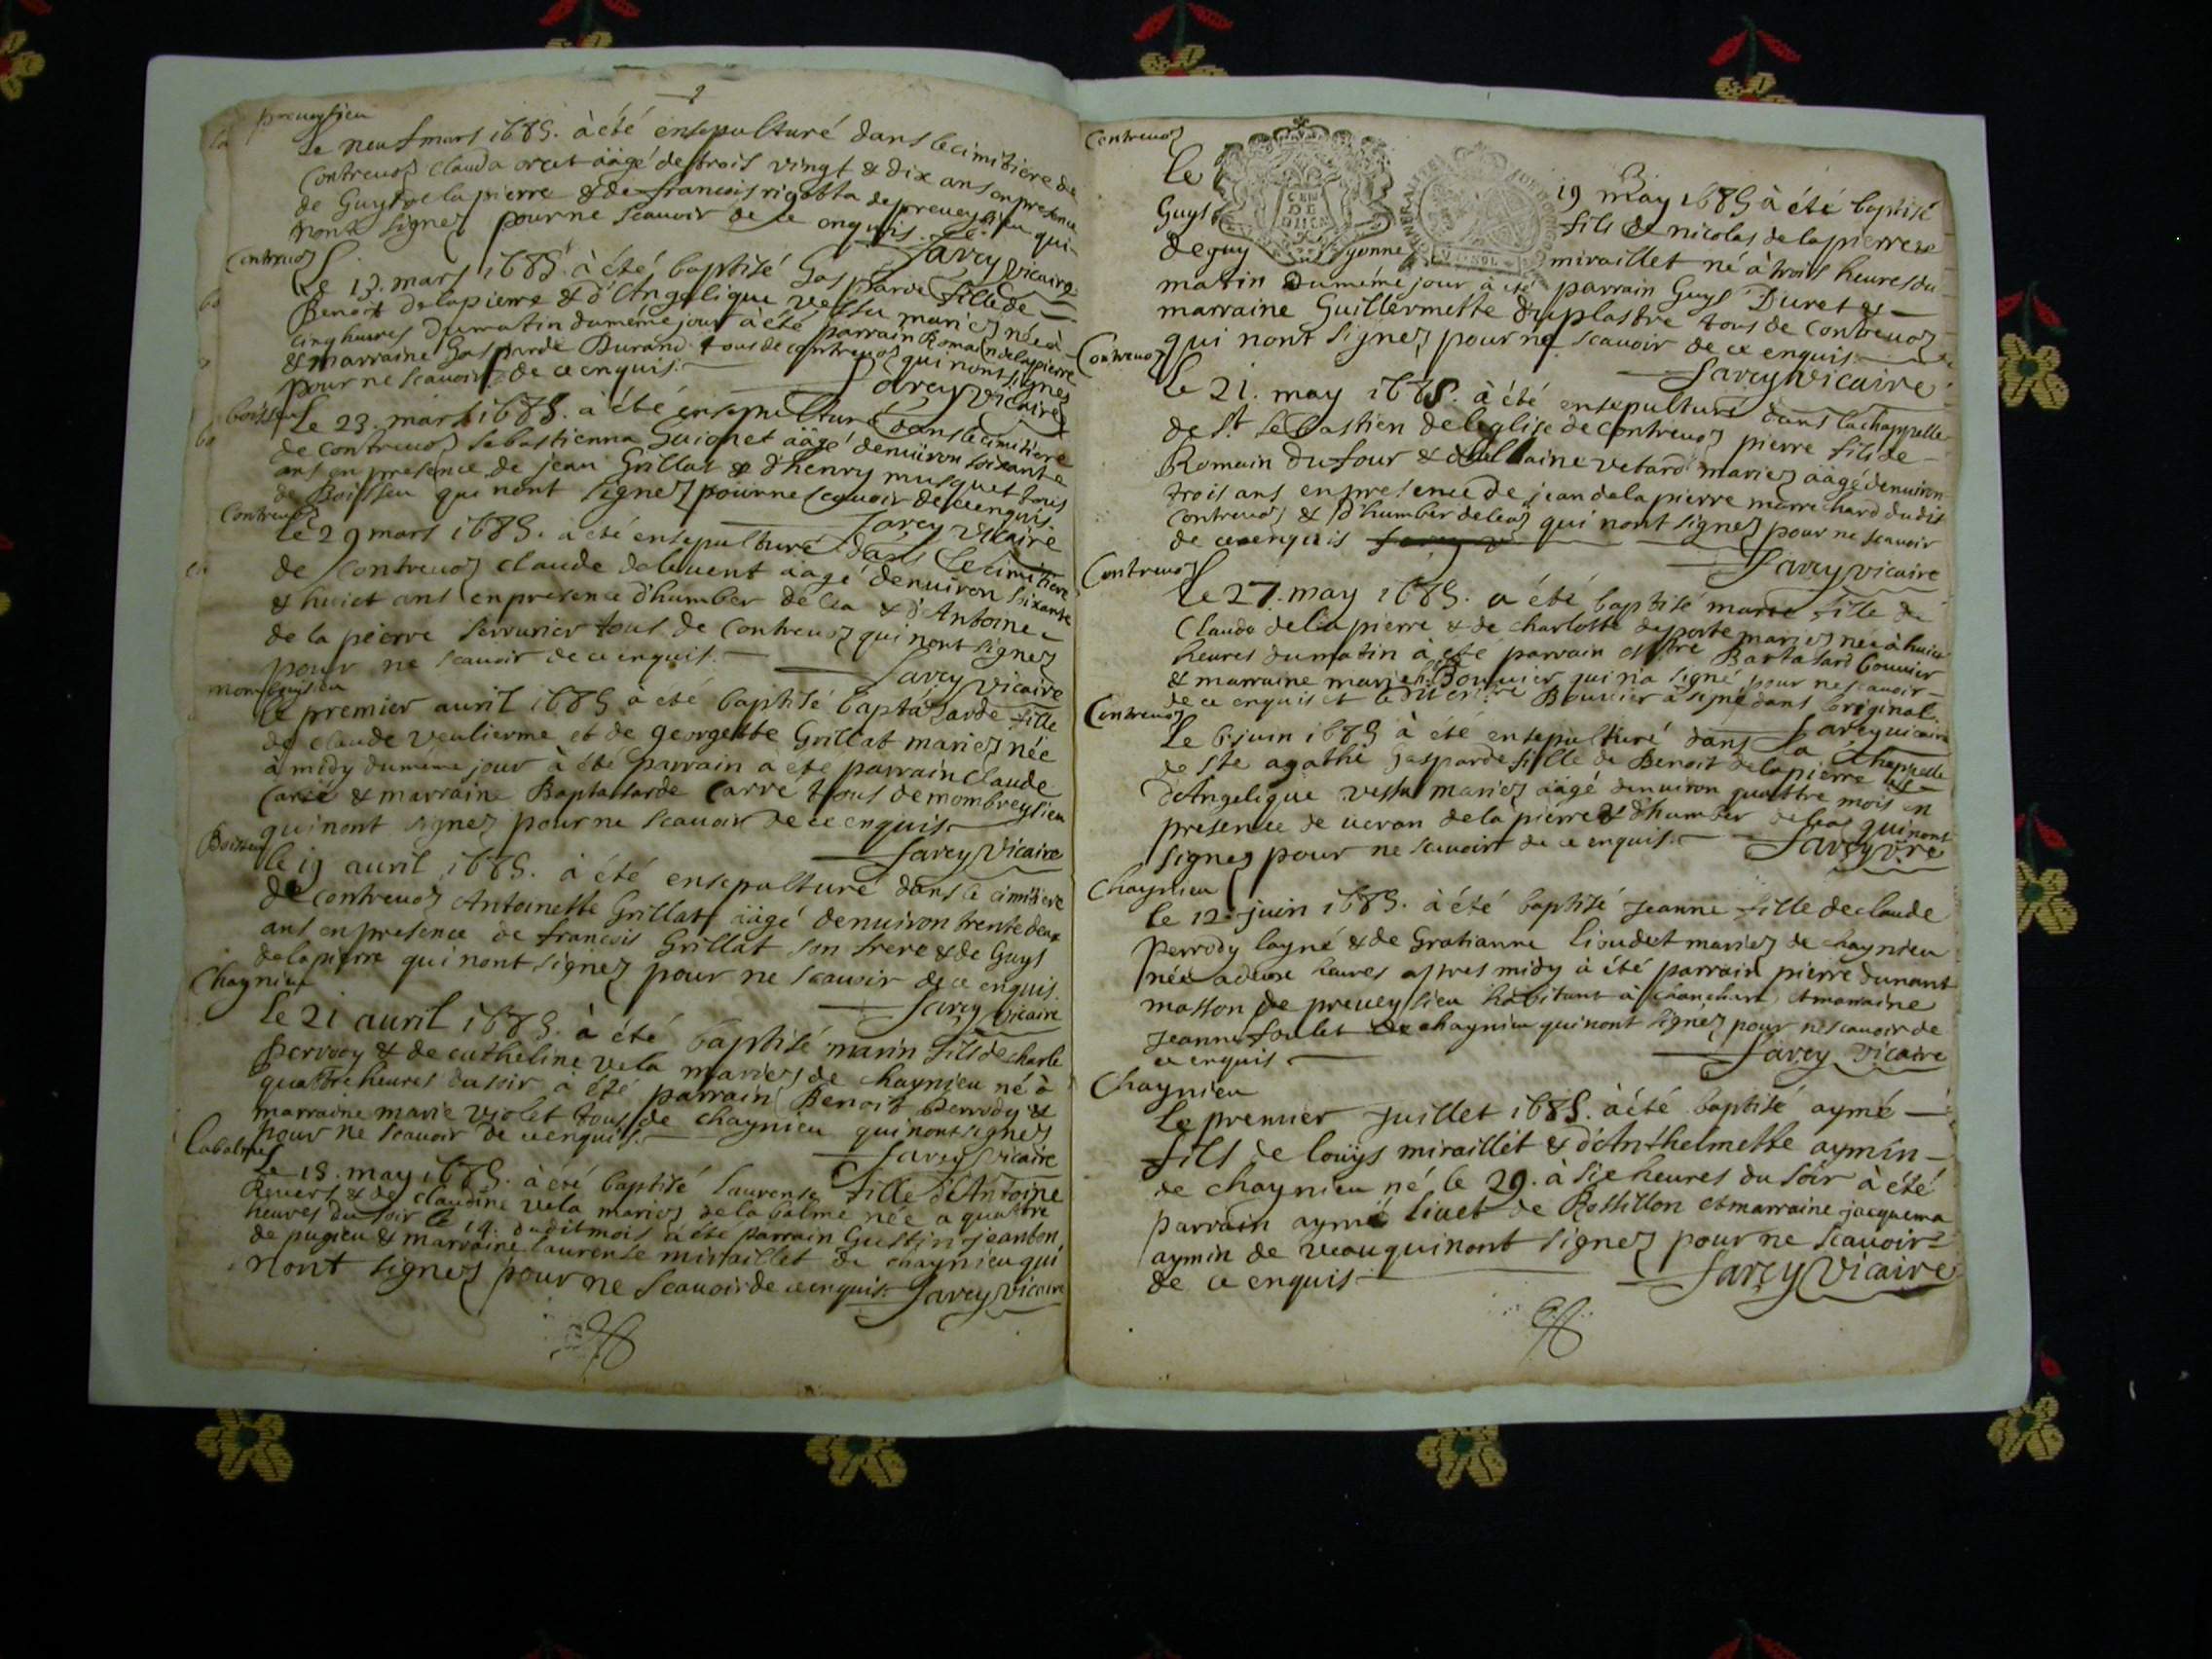 preveysieu
le neuf mars 1689. à été ensepulturé dans le cimitiere de
Contrevoz Clauda orcet ââgé de trois vingt & dix ans en presence
de Guys de la pierre & de francois rigotta de preveysieu qui
nont signez pour ne scavoir de ce enquis.
Sarcy vicaire
Contrevoz
Le 13. mars 1689. à été baptisé Gasparde fille de
Benoit delapierre & d'Angelique vessu mariez née à
cinq heures du matin du méme jour à été parrain Romain delapierre
& marraine Gasparde Durand tous de contrevoz qui nont signez
pour ne scavoir de ce enquis.
Sarcy vicaire
boissieu
Le 23. mars 1689. à été ensepulturé dans le cimitiere
de Contrevoz Sebastienna Guignet ââgé denuiron soixante
ans en presence de jean Grillat & d'henry musquet tous
de Boissieu qui nont signez pour ne scavoir de ce enquis.
Sarcy vicaire
Contrevoz
Le 29 mars 1689. à été ensepulturé dans le cimitiere
de Contrevoz claude ââgé denuiron soixante
& huict ans en presence d'humber de lea & d'Antoine
de la pierre serrurier tous de Contrevoz qui nont signez
pour ne scavoir de ce enquis.
Sarcy vicaire
le premier auril 1689 à été baptisé baptasarde fille
de claude veulierme et de georgette Grillat mariez née
à midy du méme jour à été parrain a eté parrain claude
Carre & marraine Baptasarde Carre tous de mombreysieu
qui nont signez pour ne scavoir de ce enquis.
Sarcy Vicaire
Boissieu
le 19 auril 1689. à été ensepulturé dans le cimitiere
de contrevoz Antoinette Grillat ââgé denuiron trente deux
ans en presence de francois Grillat son frere & de Guys
delapierre qui nont signez pour ne scavoir de ce enquis.
Sarcy vicaire
Chaynieu
Le 21 auril 1689. à été baptisé marin fils de charle
perrody & de catheline vela mariez de chaynieu né à
quattre heures du soir à été parrain Benoit perrody &
marraine marie violet tous de chaynieu qui nont signez
pour ne scavoir de ce enquis.
Sarcy Vicaire
Labalme
Le 18. may 1689. à été baptisé laurense fille d'Antoine
Revert & de claudine vela mariez de la balme née a quattre
heures du soir le 14. dudit mois à été parrain Gustin jeanton
de pugieu & marraine laurense miraillet de chaynieu qui
nont signez pour ne scavoir de ce enquis. Sarcy vicaire
Contrevoz
Le 19 may 1689 à été baptisé
Guys fils de nicolas de la pierre &
de guy yonne miraillet né à trois heures du
matin du méme jour à été parrain Guys Duret &
marraine Guillermette duplastre tous de Contrevoz
qui nont signez pour ne scavoir de ce enquis.
Sarcy vicaire
Contrevoz
le 21. may 1689. à été ensepulturé dans la chappelle
de St Sebastien de leglise de Contrevoz pierre fils de
Romain dufour & vetard mariez ââgé denuiron
trois ans en presence de jean delapierre marrechard dudit
Contrevoz & d'humber deleaz qui nont signez pour ne scavoir
de ce enquis
Sarcy vicaire
Contrevoz
Le 27. may 1689. a été baptisé marie fille de
Claude delapierre & de charlotte deporte mariez née à huict
heures du matin à été parrain Bartasard bouuier
& marraine Bouuier qui n'a signé pour ne scavoir
de ce enquis et le dit Bouuier à signé dans loriginal.
Sarcy vicaire
Contrevoz
Le 6 juin 1689 à été ensepulturé dans la chappelle
de Ste agathe Gasparde fille de Benoit de lapierre &
d'Angelique vessu mariez ââgé denuiron quattre mois en
presence de de la pierre & d'humber deleaz qui nont
signez pour ne scavoir de ce enquis. Sarcy v.re
Chaynieu
le 12 juin 1689. à été baptisé Jeanne fille de claude
perrody layné & de Gratianne lioudet mariez de chaynieu
née a deux heures apres midy à été parrain pierre dunant
masson de preveysieu habitant à et marraine
Jeanne foulet de chaynieu qui nont signez pour ne scavoir de
ce enquis
Sarcy vicaire
Chaynieu
Le premier Juillet 1689. à été baptisé aymé
fils de louys miraillet & d'Anthelmette aymin
de chaynieu né le 29. à six heures du soir à été
parrain aymé liuet de Rossillon et marraine jacquema
aymin de qui nont signez pour ne scavoir
de ce enquis
Sarcy Vicaire